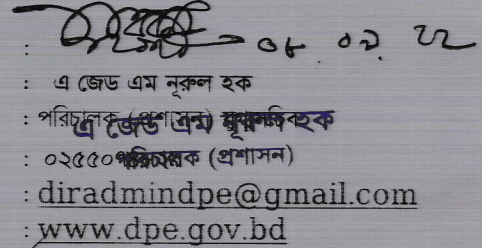 : ০৮. ০২. ২২
: এ জেড এম নূরুল হক
: পরিচালক (প্রশাসন)
এ জেড এম নূরুল হক
: ০২৫৫০
পরিচালক (প্রশাসন)
: diradmindpe@gmail.com
: www.dpe.gov.bd